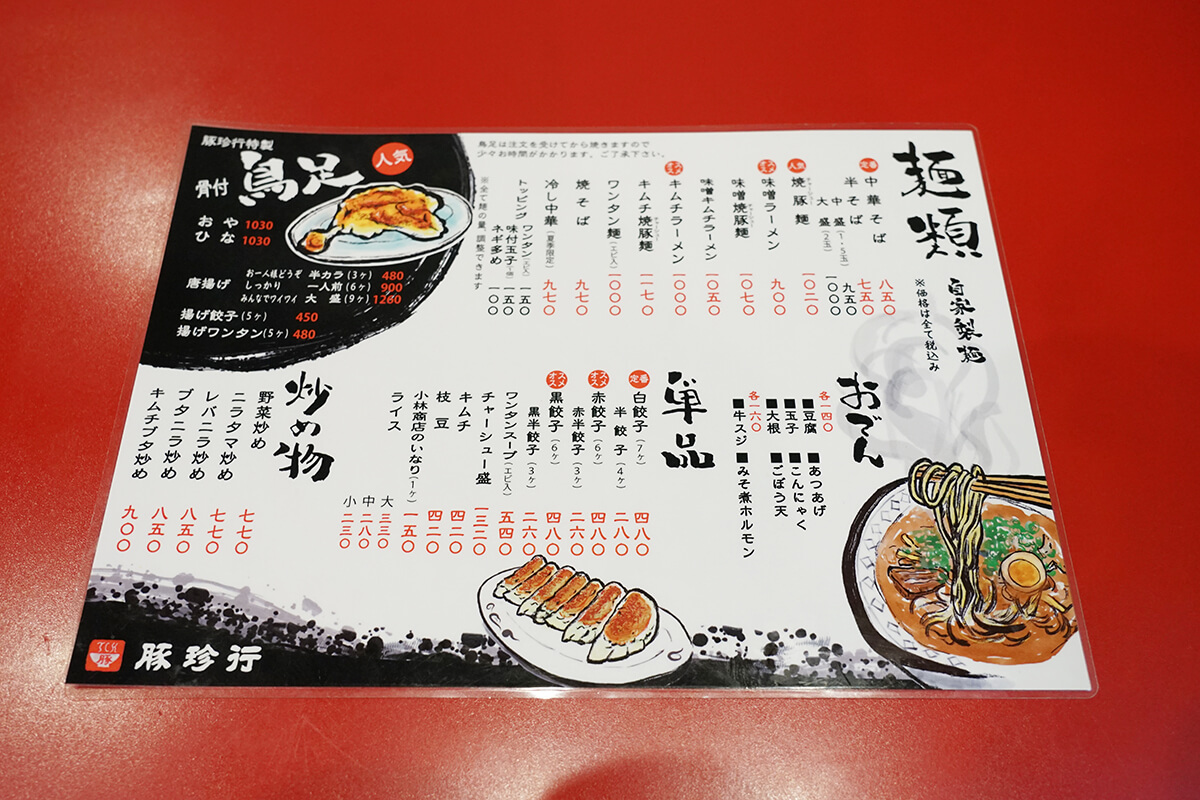 麺類
自家製麺
※価格は全て税込み
定番
中華そば 八五〇
半そば 七五〇
中盛(1・5玉) 九五〇
大盛(2玉) 一〇〇〇
人気
焼豚麺 一〇二〇
オススメ
味噌ラーメン 九〇〇
味噌焼豚麺 一〇七〇
味噌キムチラーメン 一〇五〇
オススメ
キムチラーメン 一〇〇〇
キムチ焼豚麺 一一七〇
ワンタン麺(エビ入) 一〇〇〇
焼そば 九七〇
冷し中華(夏季限定) 九七〇
トッピング ワンタン(エビ入) 一五〇
味付玉子 一五〇
ネギ多め 一〇〇
※全て麺の量、調整できます
鳥足は注文を受けてから焼きますので
少々お時間がかかります。ご了承下さい。
豚珍行特製
骨付 鳥足
人気
おや 1030
ひな 1030
唐揚げ
お一人様どうぞ 半カラ(3ヶ) 480
しっかり 一人前(6ヶ) 900
みんなでワイワイ 大盛(9ヶ) 1260
揚げ餃子(5ヶ) 450
揚げワンタン(5ヶ) 480
おでん
各一四〇
■豆腐 ■あつあげ
■玉子 ■こんにゃく
■大根 ■ごぼう天
各一六〇
■牛スジ ■みそ煮ホルモン
単品
定番
白餃子(7ヶ) 四八〇
半餃子(4ヶ) 二八〇
オススメ
赤餃子(6ヶ) 四八〇
赤半餃子(3ヶ) 二六〇
オススメ
黒餃子(6ヶ) 四八〇
黒半餃子(3ヶ) 二六〇
ワンタンスープ(エビ入) 五四〇
チャーシュー盛 一三二〇
キムチ 四二〇
枝豆 四二〇
小林商店のいなり(1ヶ) 一五〇
ライス 大 三三〇
中 二八〇
小 二三〇
炒め物
野菜炒め 七七〇
ニラタマ炒め 七七〇
レバニラ炒め 八五〇
ブタニラ炒め 八五〇
キムチブタ炒め 九〇〇
豚
豚珍行